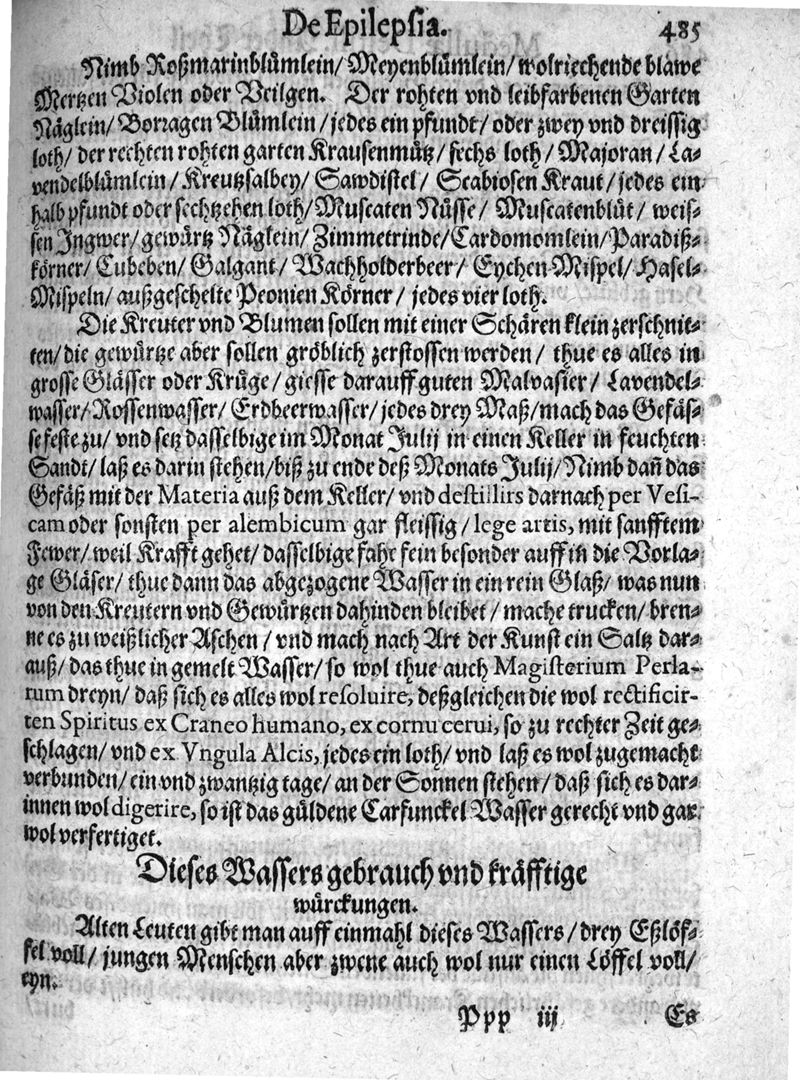 De Epilepsia. 485
Nimb Roßmarinblümlein/ Meyenblümlein/ wolriechende blawe
Mertzen Violen oder Veilgen. Der rohten vnd leibfarbenen Garten
Näglein/ Borragen Blümlein/ jedes ein pfundt/ oder zwey vnd dreissig
loth/ der rechten rohten garten Krausenmütz/ sechs loth/ Majoran/ La-
vendelblümlein/ Kreutzsalbey/ Sawdistel/ Scabiosen Kraut/ jedes ein
halb pfundt oder sechtzehen loth/ Muscaten Nüsse/ Muscatenblüt/ weis-
sen Ingwer/ gewürtz Näglein/ Zimmetrinde/ Cardomomlein/ Paradiß-
körner/ Cubeben/ Galgant/ Wachholderbeer/ Eychen Mispel/ Hasel-
Mispeln/ außgeschelte Peonien Körner/ jedes vier loth.
Die Kreuter vnd Blumen sollen mit einer Schären klein zerschnit-
ten/ die gewürtze aber sollen gröblich zerstossen werden/ thue es alles in
grosse Glässer oder Krüge/ giesse darauff guten Malvasier/ Lavendel-
wasser/ Rossenwasser/ Erdbeerwasser/ jedes drey Maß/ mach das Gefäs-
se feste zu/ vnd setz dasselbige im Monat Julij in einen Keller in feuchten
Sandt/ laß es darin stehen/ biß zu ende deß Monats Julij/ Nimb dañ das
Gefäß mit der Materia auß dem Keller/ vnd destillirs darnach per Vesi-
cam oder sonsten per alembicum gar fleissig/ lege artis, mit sanfftem
Fewer/ weil Krafft gehet/ dasselbige fahe fein besonder auff in die Vorla-
ge Gläser/ thue dann das abgezogene Wasser in ein rein Glaß/ was nun
von den Kreutern vnd Gewürtzen dahinden bleibet/ mache trucken/ bren-
ne es zu weißlicher Aschen/ vnd mach nach Art der Kunst ein Saltz dar-
auß/ das thue in gemelt Wasser/ so wol thue auch Magisterium Perla-
rum dreyn/ daß sich es alles wol resoluire, deßgleichen die wol rectificir-
ten Spiritus ex Craneo humano, ex cornu cerui, so zu rechter Zeit ge-
schlagen/ vnd ex Vngula Alcis, jedes ein loth/ vnd laß es wol zugemacht
verbunden/ ein vnd zwantzig tage/ an der Sonnen stehen/ daß sich es dar-
innen wol digerire, so ist das güldene Carfunckel Wasser gerecht vnd gar
wol verfertiget.
Dieses Wassers gebrauch vnd kräfftige
würckungen.
Alten Leuten gibt man auff einmahl dieses Wassers/ drey Eßlöf-
fel voll/ jungen Menschen aber zwene auch wol nur einen Löffel voll/
eyn.
Ppp iij Es